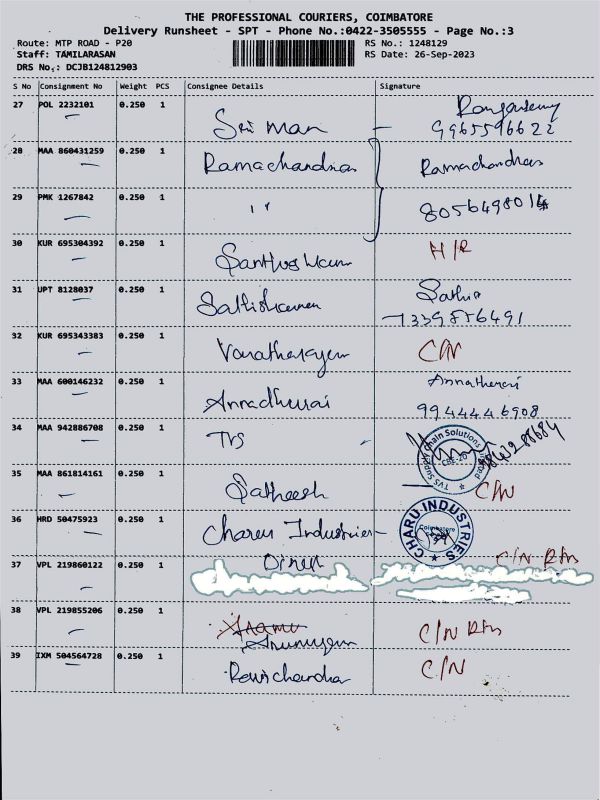 THE PROFESSIONAL COURIERS, COIMBATORE
Delivery Runsheet - SPT - Phone No.:0422-3505555 - Page No.:3
Route: MTP ROAD - P20 RS No.: 1248129
Staff: TAMILARASAN RS Date: 26-Sep-2023
DRS No.: DCJB124812903
S No Consignment No Weight PCS Consignee Details Signature
27 POL 2232101 0.250 1 Sri Man - 9965596622
28 MAA 860431259 0.250 1 Ramachandran Ramachandran
29 PMK 1267842 0.250 1 " 8056498016
30 KUR 695304392 0.250 1 H/R
31 UPT 8128037 0.250 1 Sathis
7339856491
32 KUR 695343383 0.250 1 C/N
33 MAA 600146232 0.250 1 Annadhurai Annathurai
9944446908
34 MAA 942886708 0.250 1 TVS - TVS Supply Chain Solutions Limited CBE-20
35 MAA 861814161 0.250 1 Satheesh C/N
36 HRD 50475923 0.250 1 Charu Industries CHARU INDUSTRIES Coimbatore
37 VPL 219860122 0.250 1 C/N Rtn
38 VPL 219855206 0.250 1 C/N Rtn
39 IXM 504564728 0.250 1 Ravichandra C/N